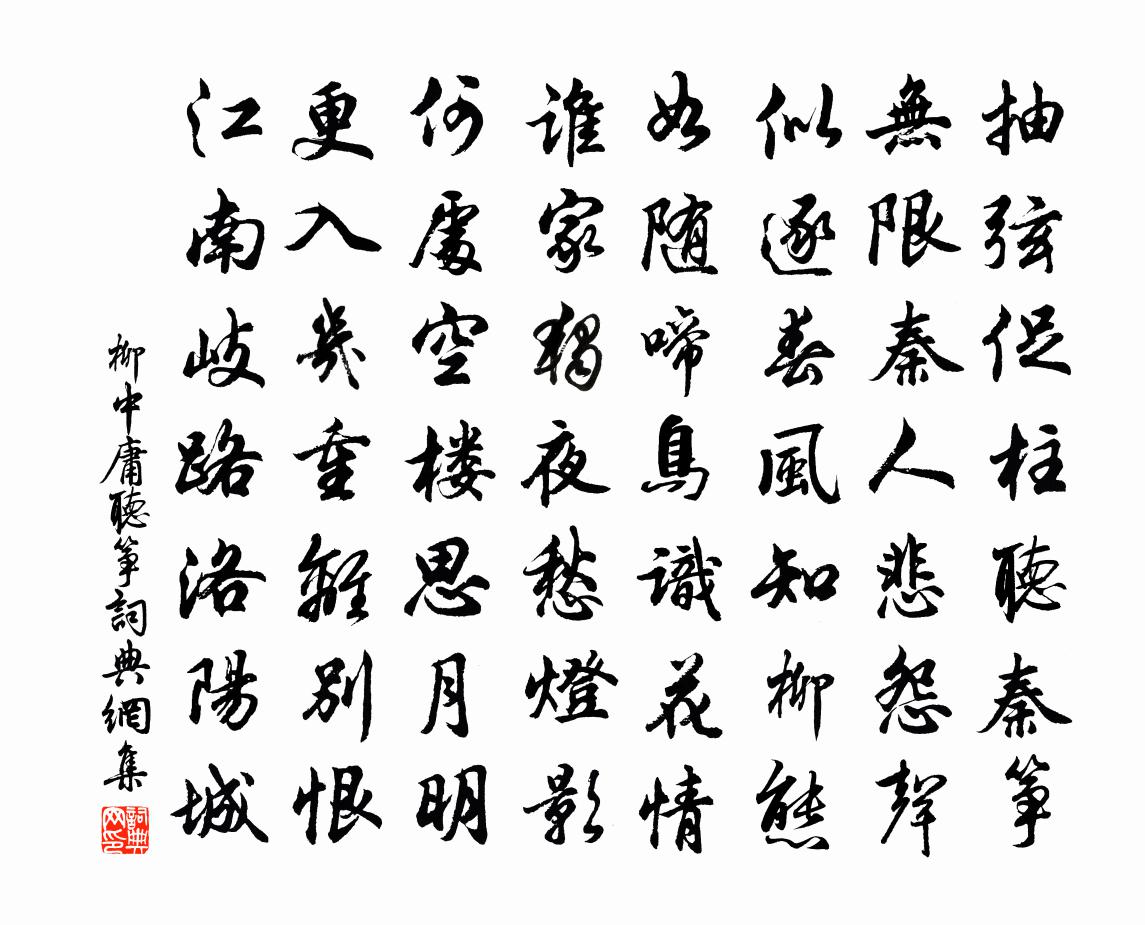 抽弦促柱聽秦箏
無限秦人悲怨聲
似逐春風知柳態
如随啼鳥識花情
誰家獨夜愁燈影
何處空楼思月明
更入幾重離別恨
江南歧路洛陽城
柳中庸聽箏詞典網集
詞典网印